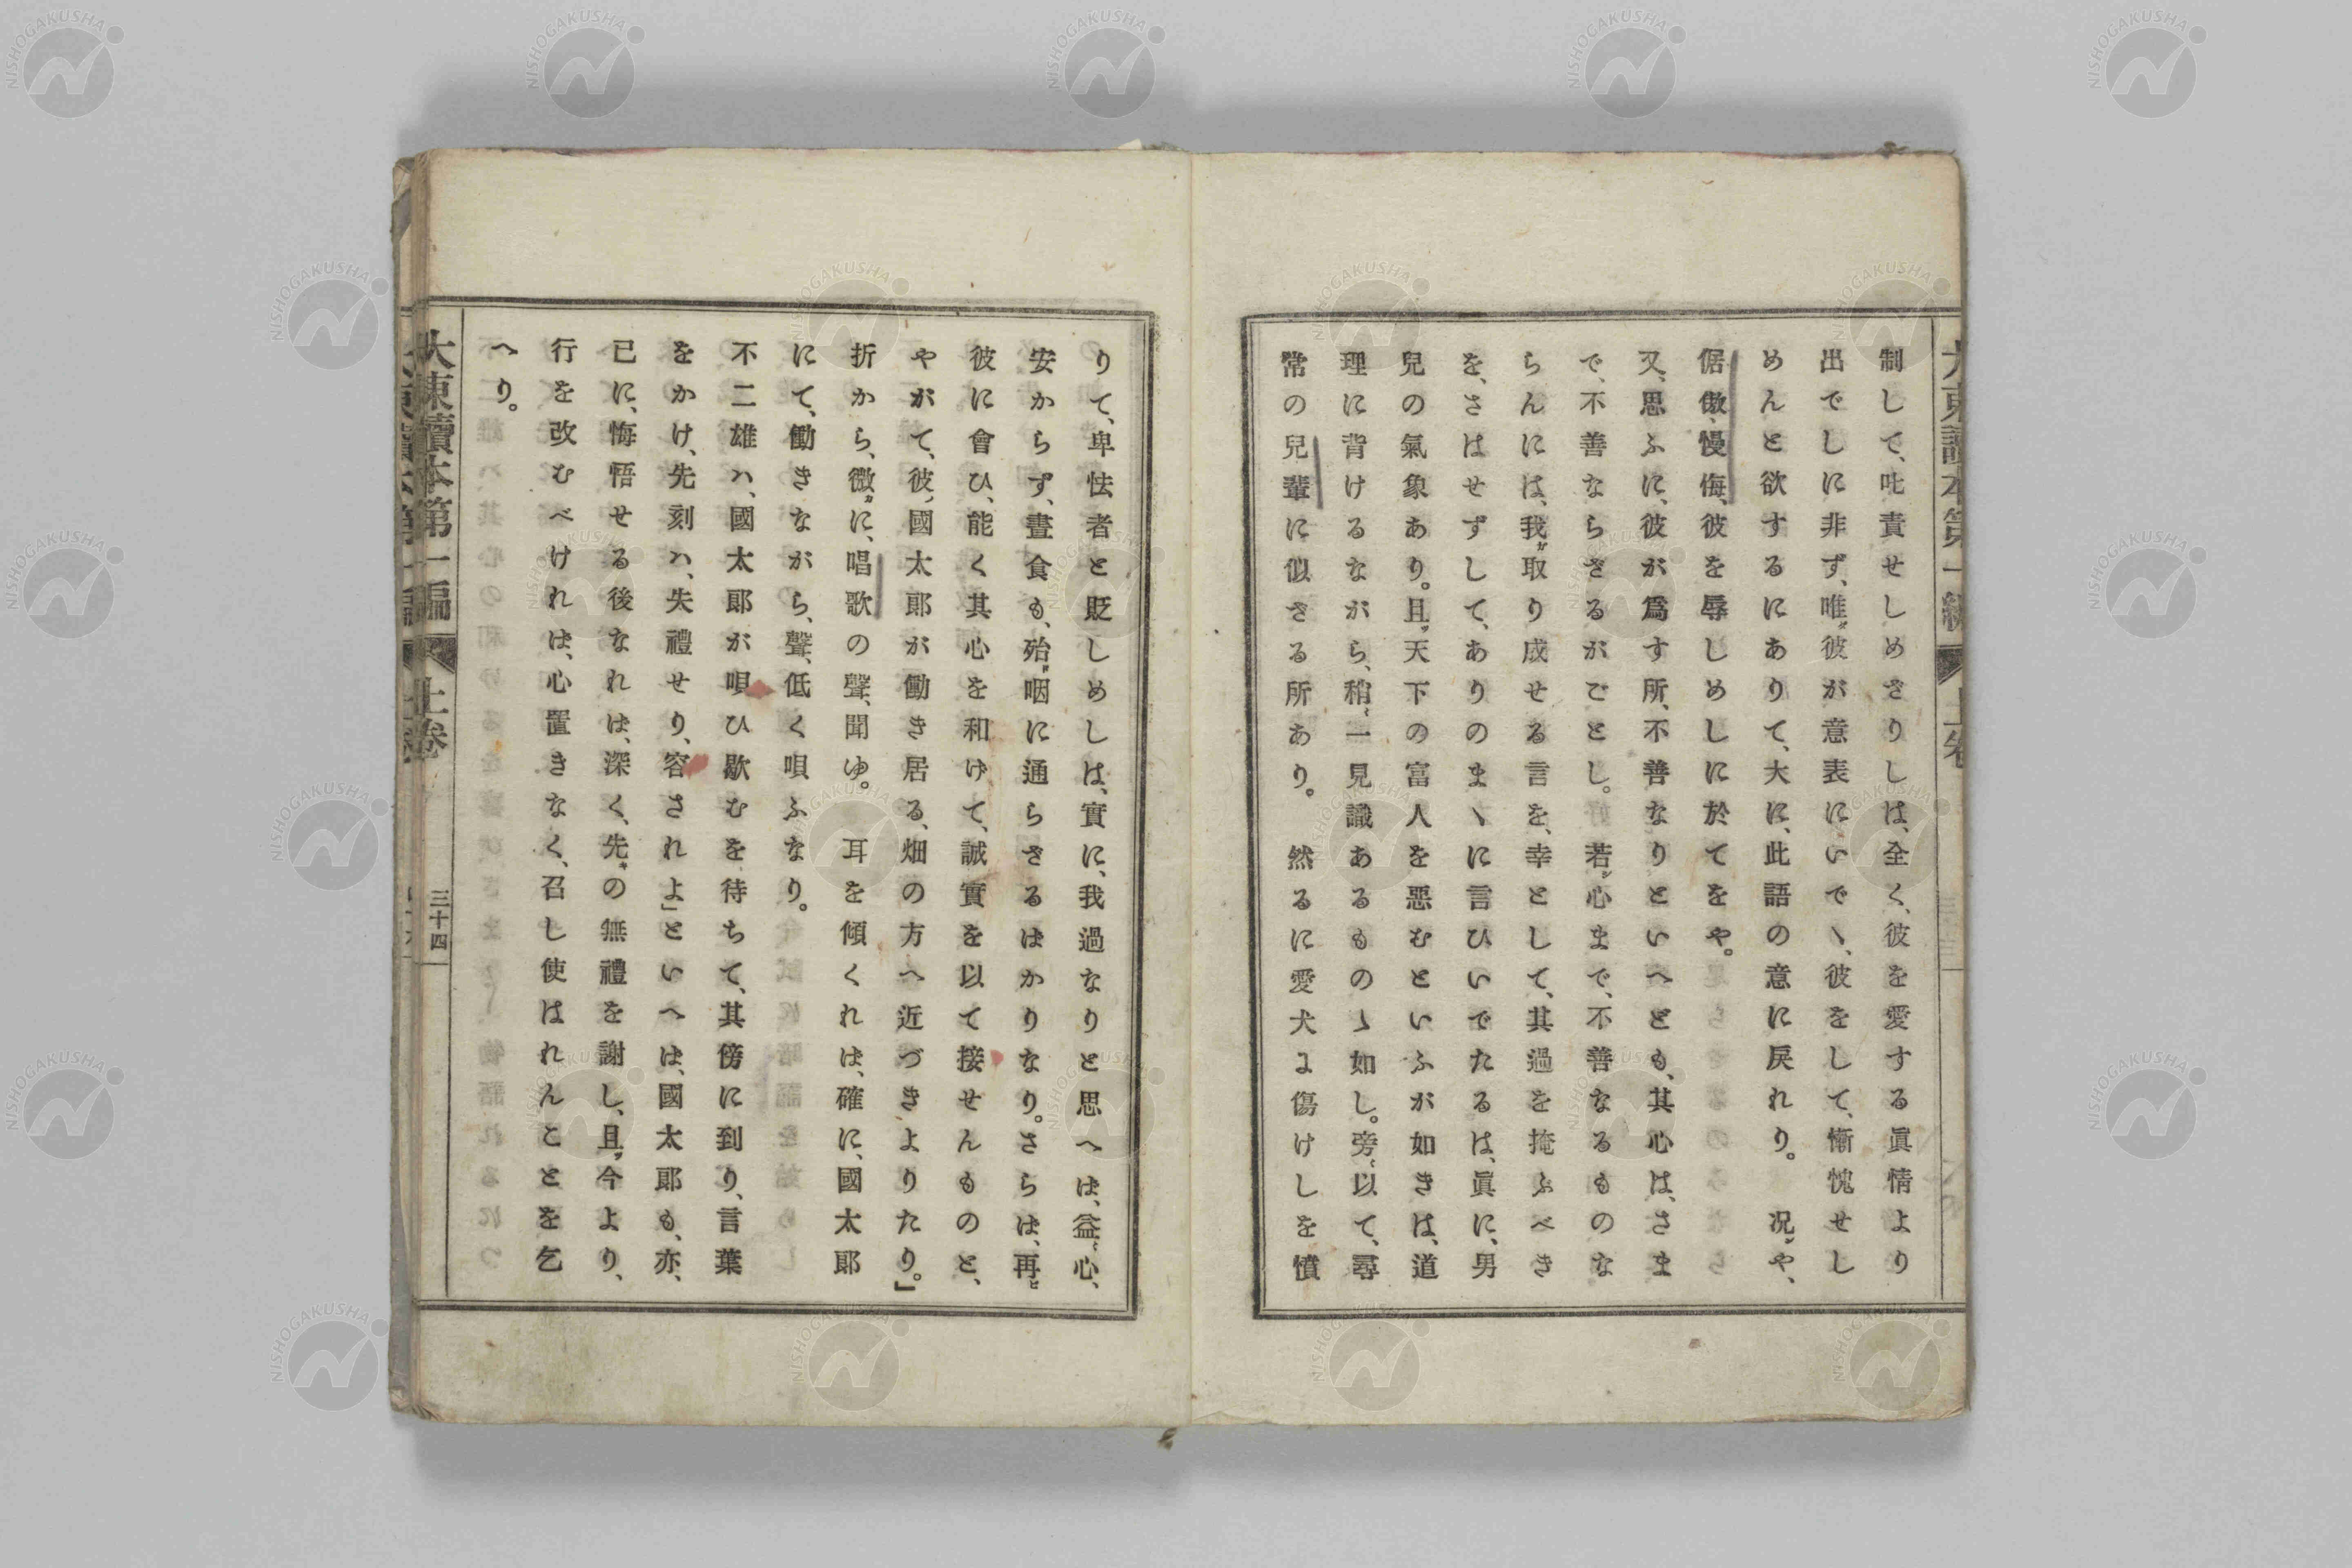 制して、叱責せしめざりしは、全く、彼を愛する眞情より
出でしに非ず、唯ダ彼が意表にいでヽ、彼をして、慚愧せし
めんと欲するにありて、大に、此語の意に戻れり。　况ンや、
倨傲、慢侮、彼を辱しめしに於てをや。
又、思ふに、彼が爲す所、不善なりといへども、其心は、さま
で、不善ならざるがごとし。若シ心まで、不善なるものな
らんには、我ガ取り成せる言を、幸として、其過を掩ふべき
を、さはせずして、ありのまヽに言ひいでたるは、眞に、男
兒の氣象あり。且ツ天下の富人を惡むといふが如きは、道
理に背けるながら、稍〻一見識あるものゝ如し。旁〻以て、尋
常の兒輩に似ざる所あり。　然るに愛犬よ傷けしを憤
りて、卑怯者と貶しめしは、實に、我過なりと思へは、益〻心、
安からず、晝食も、殆ド咽に通らざるはかりなり。さらは、再ビ
彼に會ひ、能く其心を和げて、誠實を以て接せんものと、
やがて、彼ノ國太郎が働き居る、畑の方へ近づきよりたり。」
折から、微カに、唱歌の聲、聞ゆ。　耳を傾くれは、確に、國太郎
にて、働きながら、聲、低く唄ふなり。
不二雄ハ、國太郎が唄ひ歇むを待ちて、其傍に到り、言葉
をかけ、先刻ハ、失禮せり、容されよ」といへは、國太郎も、亦、
已に、悔悟せる後なれは、深く、先キの無禮を謝し、且ツ今より、
行を改むべけれは、心置きなく、召し使はれんことを乞
へり。
大東讀本第一編　上卷　三十四